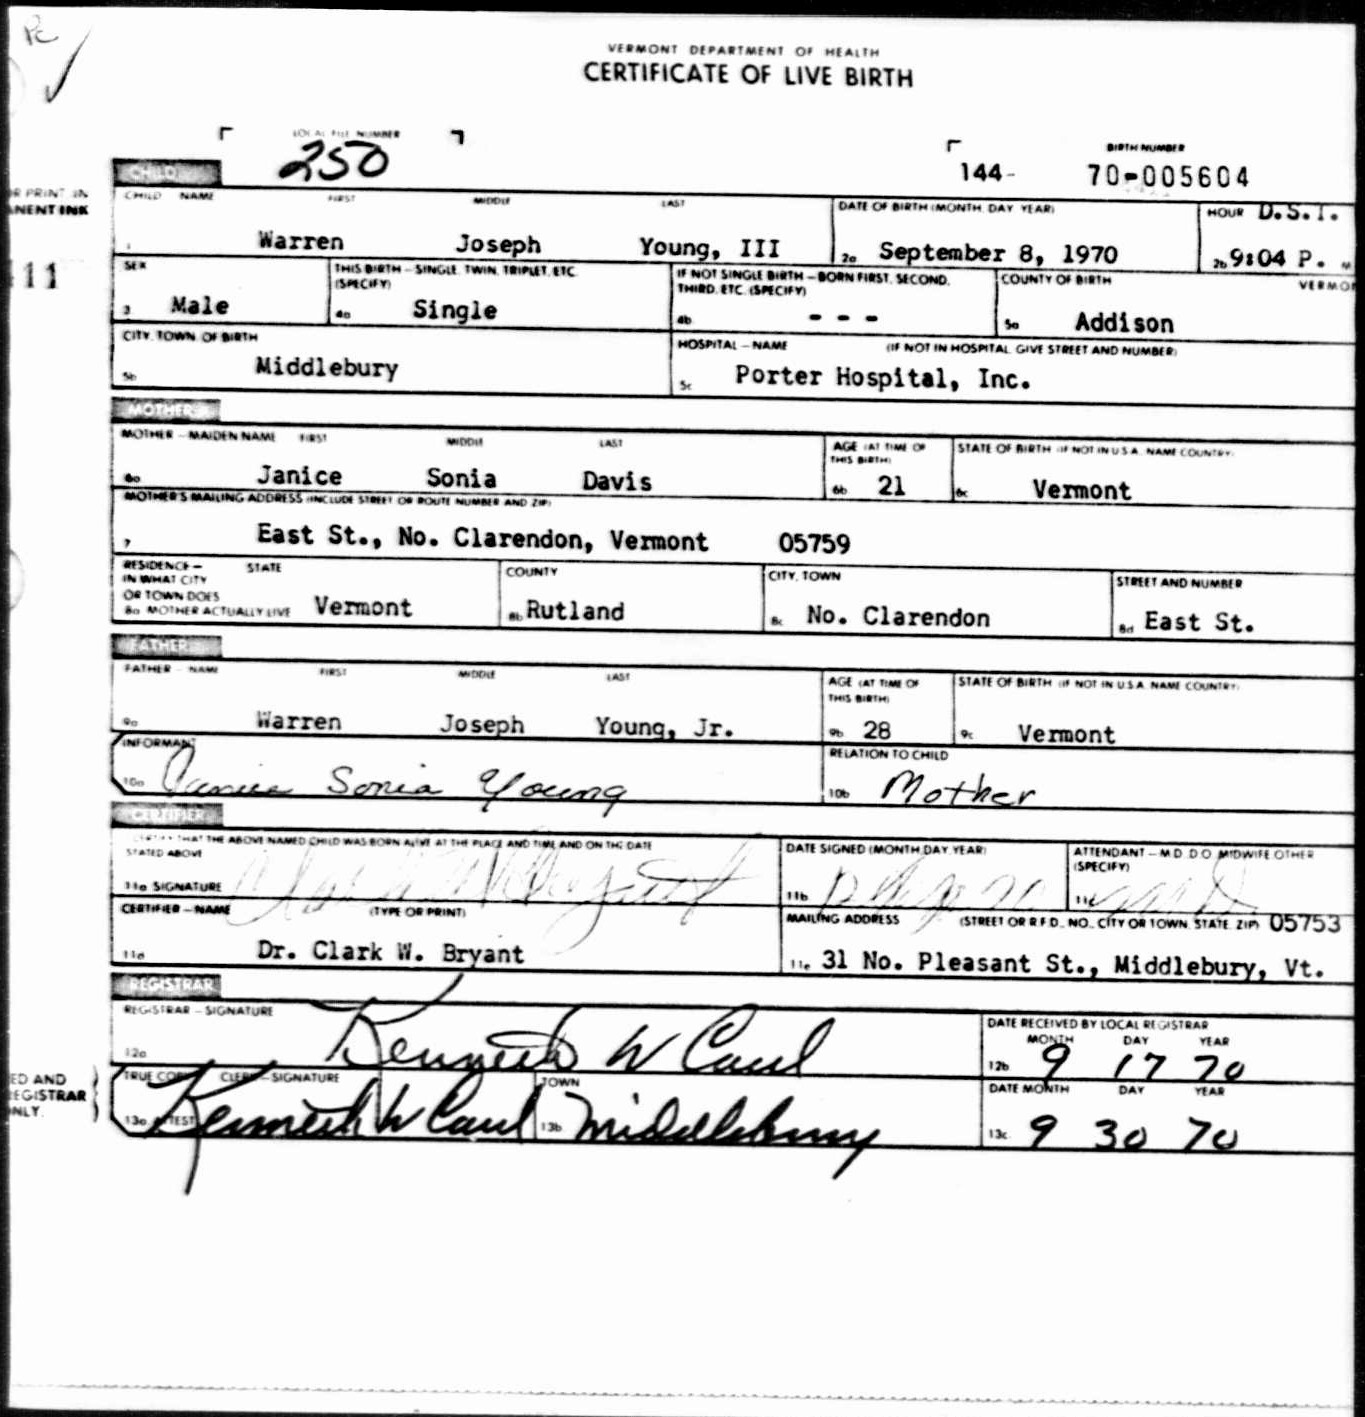 Pc
VERMONT DEPARTMENT OF HEALTH
CERTIFICATE OF LIVE BIRTH
LOCAL FILE NUMBER
250
BIRTH NUMBER
144- 70-005604
CHILD
R PRINT IN
ANENT INK
CHILD NAME FIRST MIDDLE LAST
DATE OF BIRTH (MONTH, DAY, YEAR)
HOUR D.S.T.
1 Warren Joseph Young, III
2a September 8, 1970
2b 9:04 P. M
11
SEX
THIS BIRTH – SINGLE, TWIN, TRIPLET, ETC.
(SPECIFY)
IF NOT SINGLE BIRTH – BORN FIRST, SECOND,
THIRD, ETC. (SPECIFY)
COUNTY OF BIRTH
VERMO
3 Male
4a Single
4b - - -
5a Addison
CITY, TOWN OF BIRTH
HOSPITAL – NAME (IF NOT IN HOSPITAL, GIVE STREET AND NUMBER)
5b Middlebury
5c Porter Hospital, Inc.
MOTHER
MOTHER – MAIDEN NAME FIRST MIDDLE LAST
AGE (AT TIME OF
THIS BIRTH)
STATE OF BIRTH (IF NOT IN U.S.A. NAME COUNTRY)
6a Janice Sonia Davis
6b 21
6c Vermont
MOTHER'S MAILING ADDRESS (INCLUDE STREET OR ROUTE NUMBER AND ZIP)
7 East St., No. Clarendon, Vermont 05759
RESIDENCE – STATE
IN WHAT CITY
OR TOWN DOES
8a MOTHER ACTUALLY LIVE Vermont
COUNTY
8b Rutland
CITY, TOWN
8c No. Clarendon
STREET AND NUMBER
8d East St.
FATHER
FATHER – NAME FIRST MIDDLE LAST
AGE (AT TIME OF
THIS BIRTH)
STATE OF BIRTH (IF NOT IN U.S.A. NAME COUNTRY)
9a Warren Joseph Young, Jr.
9b 28
9c Vermont
INFORMANT
10a Janice Sonia Young
RELATION TO CHILD
10b Mother
CERTIFIER
CERTIFY THAT THE ABOVE NAMED CHILD WAS BORN ALIVE AT THE PLACE AND TIME AND ON THE DATE
STATED ABOVE
11a SIGNATURE
DATE SIGNED (MONTH, DAY, YEAR)
11b
ATTENDANT – M.D., D.O., MIDWIFE, OTHER
(SPECIFY)
11c
CERTIFIER – NAME (TYPE OR PRINT)
11d Dr. Clark W. Bryant
MAILING ADDRESS (STREET OR R.F.D. NO., CITY OR TOWN, STATE, ZIP) 05753
11e 31 No. Pleasant St., Middlebury, Vt.
REGISTRAR
REGISTRAR – SIGNATURE
12a Kenneth W Caul
DATE RECEIVED BY LOCAL REGISTRAR
MONTH DAY YEAR
12b 9 17 70
ED AND
EGISTRAR
NLY.
TRUE COPY CLERK – SIGNATURE
13a ATTEST Kenneth W Caul
TOWN
13b Middlebury
DATE MONTH DAY YEAR
13c 9 30 70